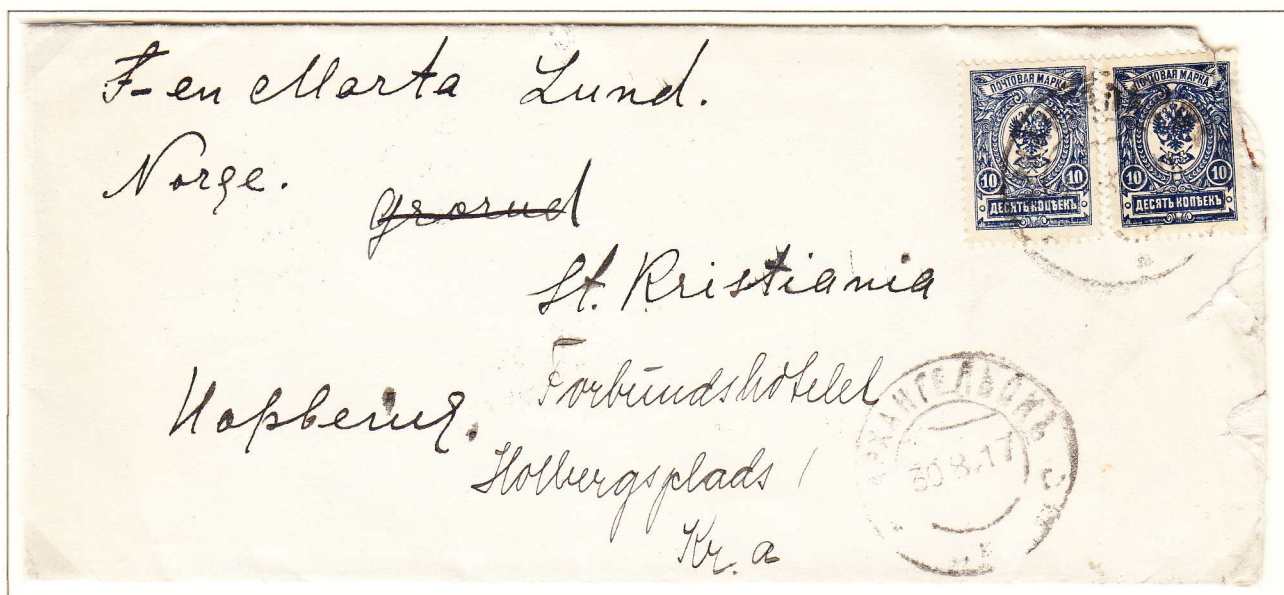 F-en Marta Lund.
Norge.
Grorud
St. Kristiania
Forbundshotelet
Holbergsplads 1
Kr. a
Норвегия.
ПОЧТОВАЯ МАРКА
10 10
ДЕСЯТЬ КОПѢЕКЪ
ПОЧТОВАЯ МАРКА
10 10
ДЕСЯТЬ КОПѢЕКЪ
АРХАНГЕЛЬСКЪ
30.8.17